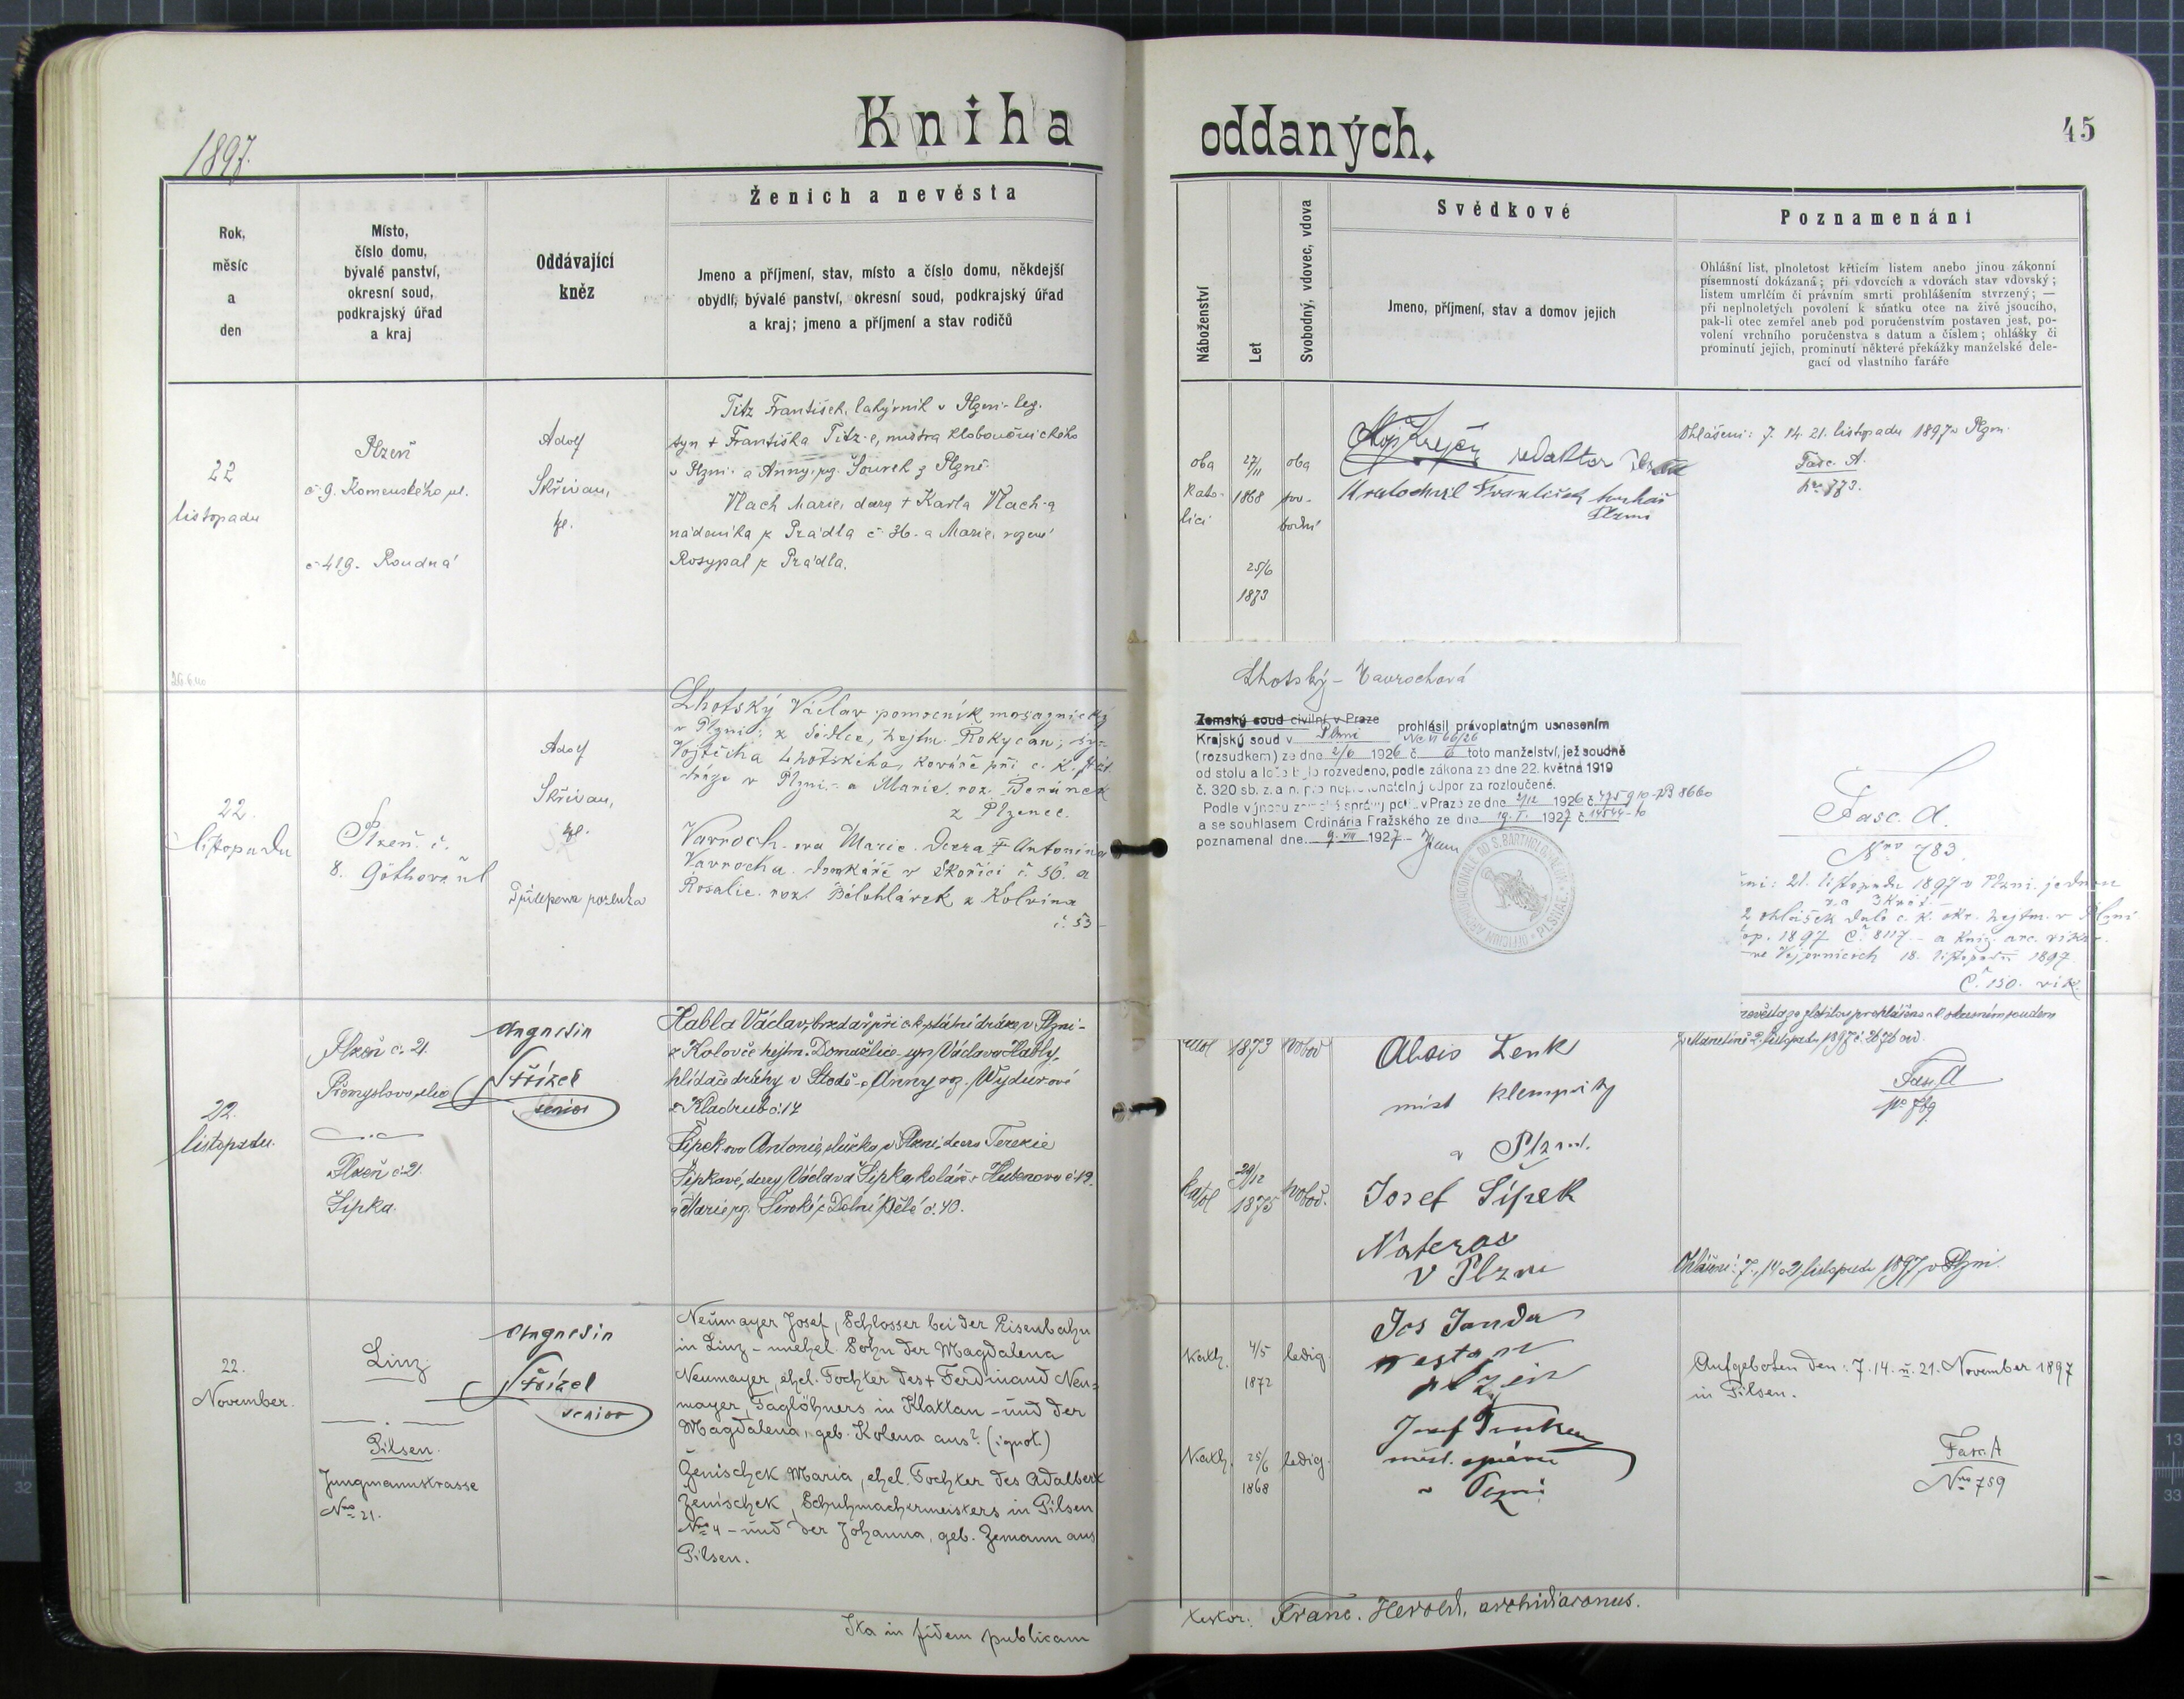 Kniha oddaných.
45
1897.
Rok,
měsíc
a
den
Místo,
číslo domu,
bývalé panství,
okresní soud,
podkrajský úřad
a kraj
Oddávající
kněz
Ženich a nevěsta
Jmeno a příjmení, stav, místo a číslo domu, někdejší
obydlí, bývalé panství, okresní soud, podkrajský úřad
a kraj; jmeno a příjmení a stav rodičů
Náboženství
Let
Svobodný, vdovec, vdova
Svědkové
Jmeno, příjmení, stav a domov jejich
Poznamenání
Ohlášní list, plnoletost křticím listem anebo jinou zákonní
písemností dokázaná; při vdovcích a vdovách stav vdovský;
listem umrlčím či právním smrti prohlášením stvrzený; —
při neplnoletých povolení k sňatku otce na živě jsoucího,
pak-li otec zemřel aneb pod poručenstvím postaven jest, po-
volení vrchního poručenstva s datum a číslem; ohlášky či
prominutí jejich, prominutí některé překážky manželské dele-
gací od vlastního faráře
22
listopadu
Plzeň
č 9. Komenského ul.
č 419. Roudná
Adolf
Skřivan,
Titz František, lakýrník v Plzni-
syn + Františka Titz-e, mistra kloboučnického
v Plzni. a Anny, Sourek z Plzně.
Vlach Marie, dcera + Karla Vlach-a
nádeníka z Prádla č 36. a Marie, rozené
Rosypal z Prádla.
oba
kato-
líci
27/11
1868
25/6
1873
oba
svo-
bodní
redaktor
Kratochvil František
Plzni
Ohlášeni: 7. 14. 21. listopadu 1897 v Plzni.
Fasc. A.
26.6.40
22.
listopadu
Plzeň č.
8. Göthova ul
Adolf
Skřivan,
Lhotský Václav pomocník mosaznický
v Plzni; z Sedlce, hejtm. Rokycan; syn
Vojtěcha Lhotského, kováře při c. k. stát.
dráze v Plzni - a Marie roz. Beránek
z Plzence.
Varroch-ova Marie. Dcera + Antonína
Varrocha domkáře v Skořici č 56. a
Rosalie. roz. Bělohlávek z Kolvína
č. 53
Lhotský -
Zemský soud civilní v Praze
Krajský soud v Plzni prohlásil právoplatným usnesením
(rozsudkem) ze dne 2/6 1926 č. 6 toto manželství, jež soudně
od stolu a lože bylo rozvedeno, podle zákona ze dne 22. května 1919
č. 320 sb. z. a n. pro nepřekonatelný odpor za rozloučené.
Podle výnosu zemské správy polit. v Praze ze dne 1926 č.
a se souhlasem Ordinária Pražského ze dne 19. I. 1927 č.
poznamenal dne 9. VII 1927
Fasc. A.
Nro 783.
21. listopadu 1897 v Plzni. jednou
za 3krát. -
2 ohlášek dalo c. k. okr. hejtm. v Plzni
1897 Č. 8117 - a kniž. arc. vikář.
18. listopadu 1897
Č. 150. vik.
22.
listopadu.
Plzeň č. 21.
Přemyslova ulice
Plzeň č 21
Šípka.
Střízel
senior
Habla Václav, brzdař při c k státní dráze v Plzni -
z Kolovče hejtm. Domažlice - syn Václava Hably,
hlídače dráhy v Stodě - a Anny roz. Wydurové
z Kladrub č. 14
Šípek-ova Antonie, služka v Plzni, dcera Terezie
Šípkové, dcery Václava Šípka koláře z Hubenova č 19.
a Marie roz. Široké z Dolní Bělé č. 40.
katol
1873
svobod
katol
29/12
1875
svobod.
Alois Lenk
mist klempířský
v Plzni.
Josef Šípek
v Plzni
Manětíně 2. listopadu 1897
Fasc. A
Ohlášeni: 7., 14. a 21 listopadu 1897 v Plzni.
22.
November.
Linz
Pilsen.
Jungmannstrasse
Nro 21.
Střízel
senior
Neumayer Josef, Schlosser bei der Eisenbahn
in Linz - unehel. Sohn der Magdalena
Neumayer, ehel. Tochter des + Ferdinand Neu-
mayer, Taglöhners in Klattau - und der
Magdalena, geb. Kolena aus? (ignot.)
Ženischek Maria, ehel. Tochter des Adalbert
Ženischek, Schuhmachermeisters in Pilsen
Nro 4 - und der Johanna, geb. Zemann aus
Pilsen.
Kath.
4/5
1872
ledig
Kath.
25/6
1868
ledig
Jos Janda
Josef
Aufgeboten den: 7. 14. u. 21. November 1897
in Pilsen.
Fasc. A
Nro 759
Ita in fidem publicam
Franc. Herold, archidiaconus.